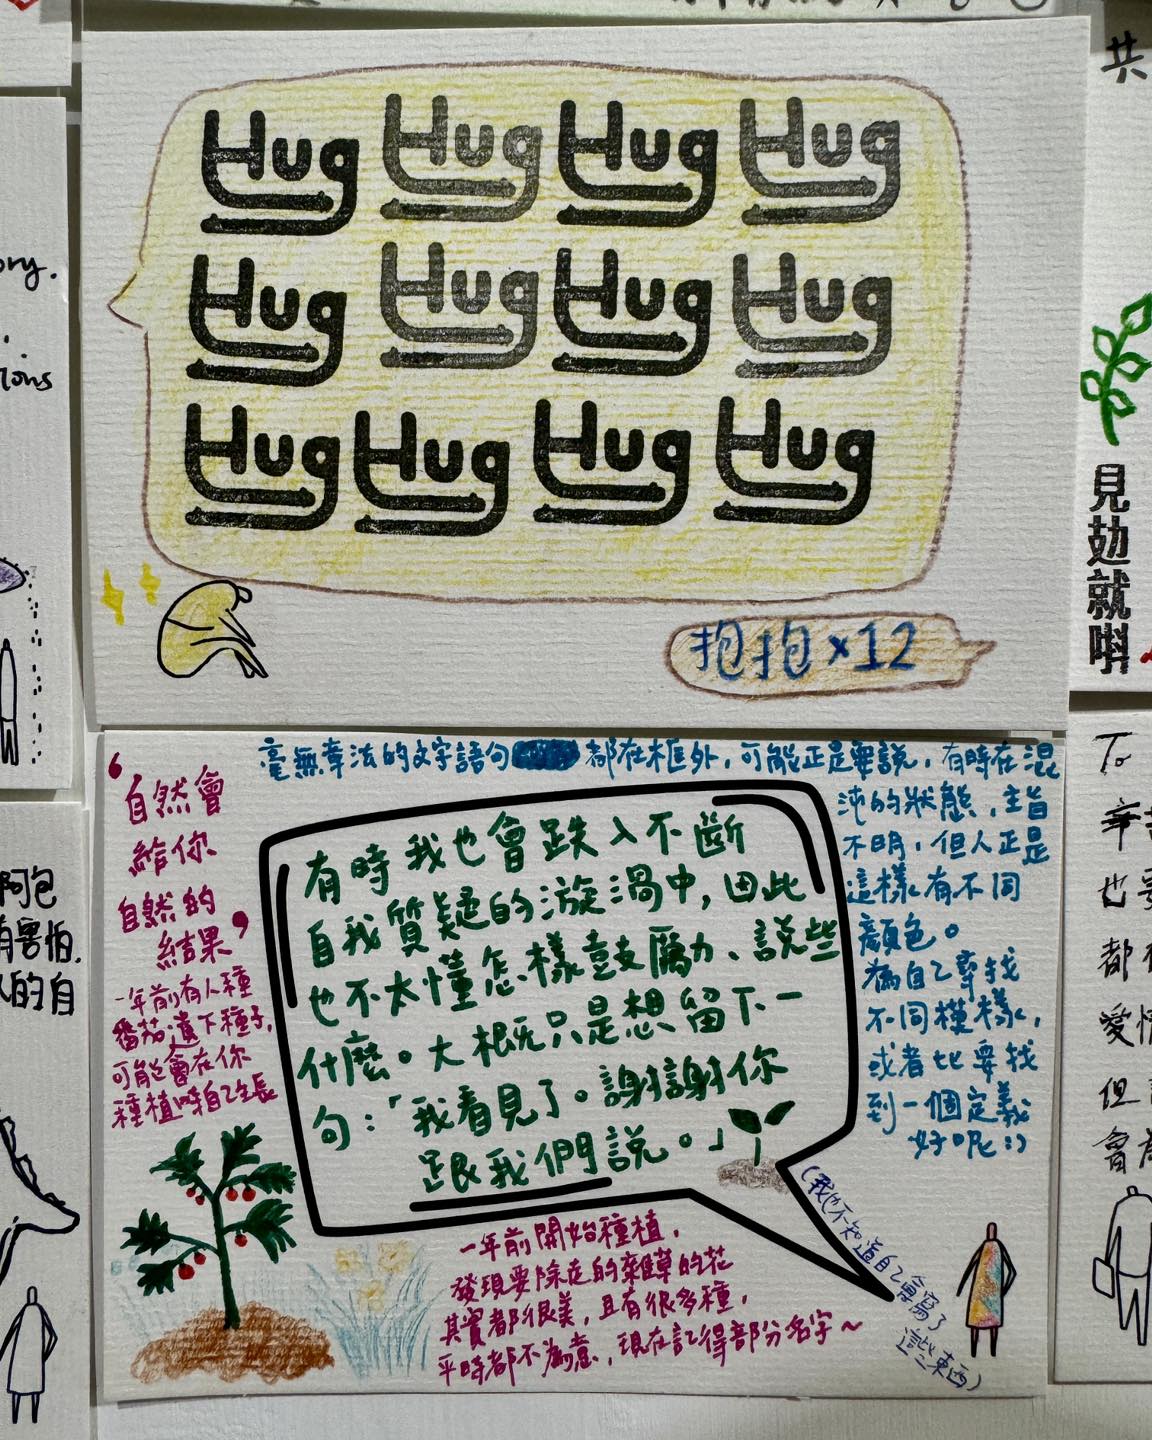 Hug Hug Hug Hug
Hug Hug Hug Hug
Hug Hug Hug Hug
抱抱×12
共
見攰就唞
ory.
tions
阿包
有害怕,
的自
To
辛
也
都
愛情
但
會
毫無章法的文字語句 都在框外,可能正是要說,有時在混
沌的狀態,主旨
不明,但人正是
這樣有不同
顏色。
為自己尋找
不同模樣,
或者比要找
到一個定義
好呢:)
‘自然會
給你
自然的
結果’
一年前有人種
番茄遺下種子,
可能會在你
種植時自己生長
有時我也會跌入不斷
自我質疑的漩渦中,因此
也不太懂怎樣鼓勵、說些
什麼。大概只是想留下一
句:「我看見了。謝謝你
跟我們說。」
(我也不知道自己會寫了
這些東西)
一年前開始種植,
發現要除走的雜草的花
其實都很美,且有很多種,
平時都不為意,現在記得部分名字~